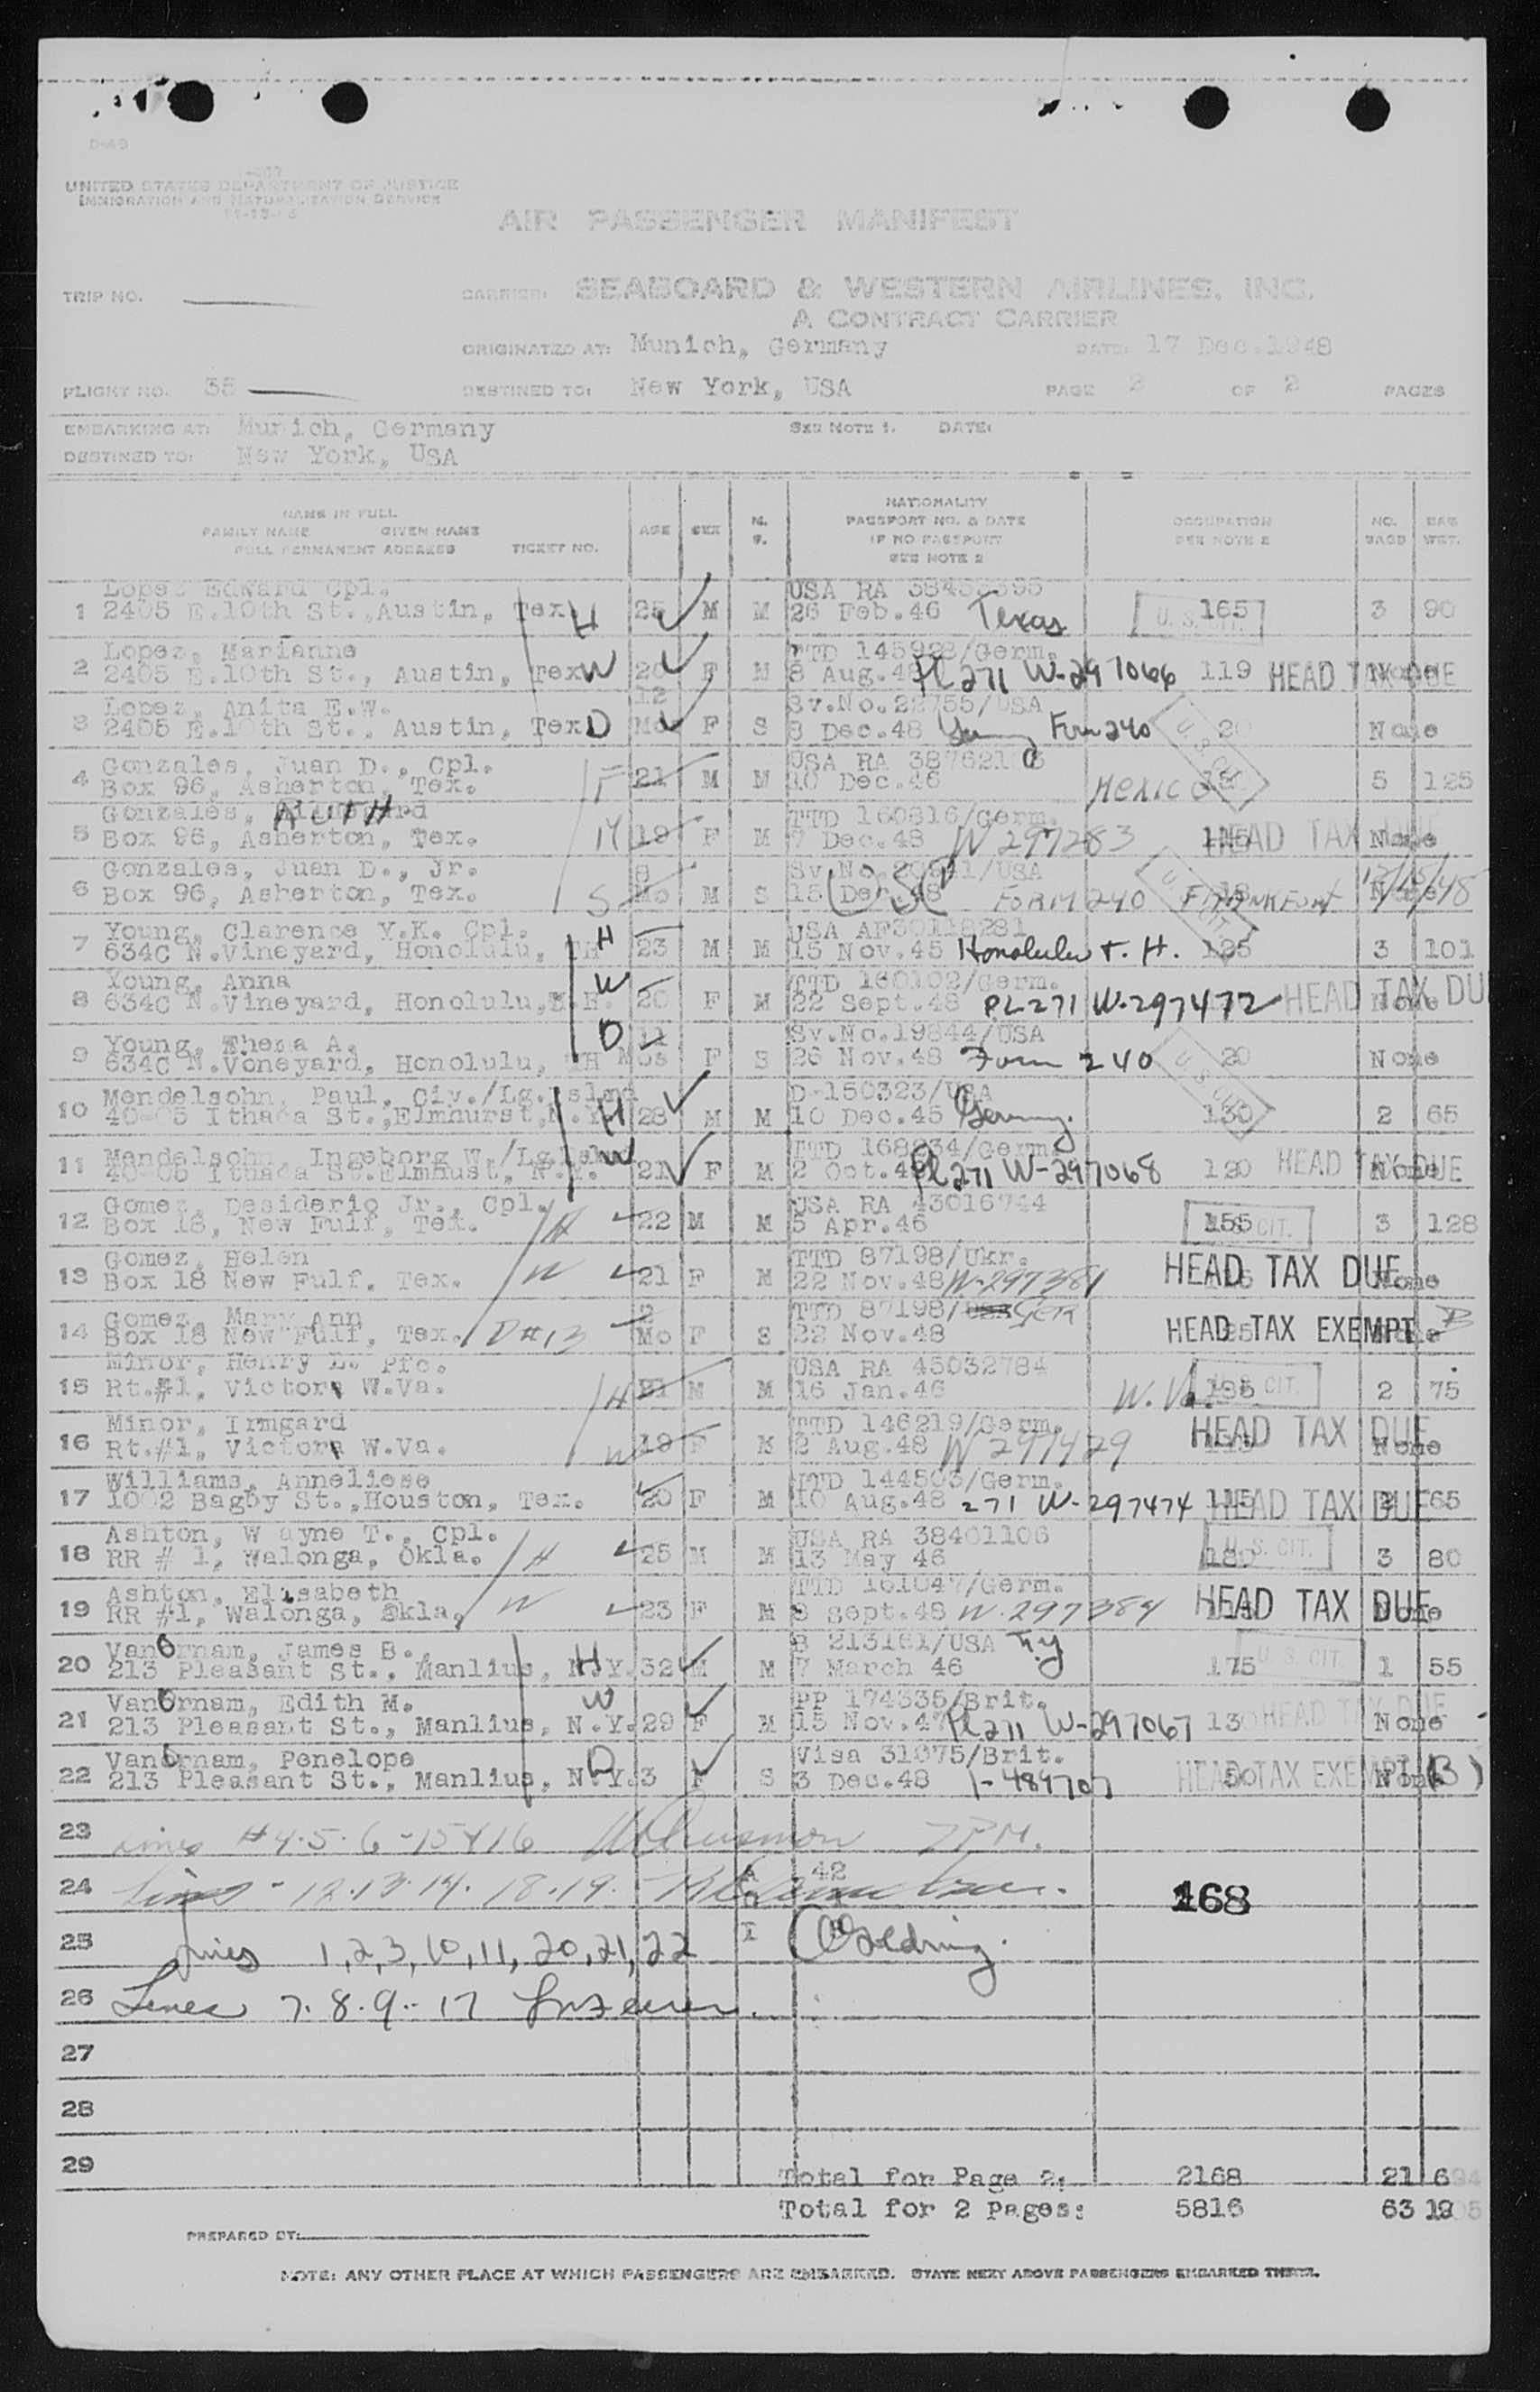 D-49
UNITED STATES DEPARTMENT OF JUSTICE
IMMIGRATION AND NATURALIZATION SERVICE
AIR PASSENGER MANIFEST
TRIP NO.
CARRIER: SEABOARD & WESTERN AIRLINES, INC.
A CONTRACT CARRIER
ORIGINATED AT: Munich, Germany DATE: 17 Dec.1948
FLIGHT NO. 35 DESTINED TO: New York, USA PAGE 2 OF 2 PAGES
EMBARKING AT: Munich, Germany SEE NOTE 1. DATE:
DESTINED TO: New York, USA
NAME IN FULL
FAMILY NAME GIVEN NAME
FULL PERMANENT ADDRESS TICKET NO.
AGE SEX M. S.
NATIONALITY
PASSPORT NO. & DATE
IF NO PASSPORT
SEE NOTE 2
OCCUPATION
SEE NOTE 2
NO. BAGS
BAG WGT.
Lopez Edward Cpl. USA RA
1 2405 E.10th St.,Austin, Tex H 25 M M 26 Feb.46 Texas U.S.CIT. 165 3 90
Lopez, Marianne TTD 145928/Germ.
2 2405 E.10th St., Austin, Tex W 20 F M 8 Aug.48 PL 271 W-297066 119 HEAD TAX DUE None
Lopez, Anita E.W. 12 Sv.No.22755/USA
3 2405 E.10th St., Austin, Tex D Mo F S 8 Dec.48 Form 240 U.S.CIT. 20 None
Gonzales, Juan D., Cpl. USA RA
4 Box 96, Asherton, Tex. F 21 M M 10 Dec.46 Mexico 5 125
Gonzales, RUTH TTD 160816/Germ.
5 Box 96, Asherton, Tex. M 19 F M 7 Dec.48 W 297283 115 HEAD TAX DUE None
Gonzales, Juan D., Jr. 8 Sv.No. /USA
6 Box 96, Asherton, Tex. S Mo M S 15 Dec.48 USC FORM 240 FRANKFURT 18 None 12/15/48
Young, Clarence Y.K. Cpl. H USA AF30118281
7 634C N.Vineyard, Honolulu, TH 23 M M 15 Nov.45 Honolulu T. H. 125 3 101
Young, Anna W TTD 160102/Germ.
8 634C N.Vineyard, Honolulu, 20 F M 22 Sept.48 PL 271 W-297472 HEAD TAX DU None
Young, Thesa A. D 11 Sv.No.19844/USA
9 634C N.Voneyard, Honolulu, TH Mos F S 26 Nov.48 Form 240 U.S.CIT. 20 None
Mendelsohn, Paul, Civ./Lg.Islnd D-150323/USA
10 40-05 Ithaca St.,Elmhurst,N.Y. H 28 M M 10 Dec.45 Germany. 130 2 65
Mendelsohn, Ingeborg W./Lg.Islnd W TTD 168234/Germ.
11 40-05 Ithaca St.Elmhust, N.Y. 21 F M 2 Oct.48 PL 271 W-297068 120 HEAD TAX DUE None
Gomez, Desiderio Jr., Cpl. USA RA 43016744
12 Box 18, New Fulf, Tex. H 22 M M 5 Apr.46 155 U.S.CIT. 3 128
Gomez, Helen TTD 87198/Ukr.
13 Box 18 New Fulf. Tex. W 21 F M 22 Nov.48 W-297381 HEAD TAX DUE None
Gomez, Mary Ann 2 TTD 87198/ GER
14 Box 18 New Fulf, Tex. D#13 Mo F S 22 Nov.48 HEAD TAX EXEMPT B
Minor, Henry E. Pfc. USA RA 45032784
15 Rt.#1, Victor, W.Va. H 21 M M 16 Jan.46 W.Va. 185 U.S.CIT. 2 75
Minor, Irmgard TTD 146219/Germ.
16 Rt.#1, Victor, W.Va. W 19 F M 2 Aug.48 W 297429 HEAD TAX DUE None
Williams, Anneliese TTD 144503/Germ.
17 1002 Bagby St.,Houston, Tex. 20 F M 10 Aug.48 271 W-297474 115 HEAD TAX DUE 2 65
Ashton, W ayne T., Cpl. USA RA 38401106
18 RR # 1, Walonga, Okla. H 25 M M 13 May 46 180 U.S.CIT. 3 80
Ashton, Elisabeth TTD 161047/Germ.
19 RR #1, Walonga, Okla, W 23 F M 9 Sept.48 W-297384 HEAD TAX DUE None
VanOrnam, James B., B 213161/USA N.Y
20 213 Pleasant St., Manlius, N.Y. H 32 M M 7 March 46 175 U.S.CIT. 1 55
VanOrnam, Edith M. W PP 174335/Brit.
21 213 Pleasant St., Manlius, N.Y. 29 F M 15 Nov.47 PL 271 W-297067 130 HEAD TAX DUE None
VanOrnam, Penelope D Visa 31075/Brit.
22 213 Pleasant St., Manlius, N.Y. 3 F S 3 Dec.48 1-489707 50 HEAD TAX EXEMPT None (B)
23 Lines #4-5-6-15&16 7PM.
24 Lines - 12.13.14. 18.19. A 42 168
25 Lines 1,2,3,10,11,20,21,22 I Golding.
26 Lines 7.8.9.-17
27
28
29
Total for Page 2: 2168 21 694
Total for 2 Pages: 5816 63
PREPARED BY:
NOTE: ANY OTHER PLACE AT WHICH PASSENGERS ARE EMBARKED. STATE NEXT ABOVE PASSENGERS EMBARKED THERE.